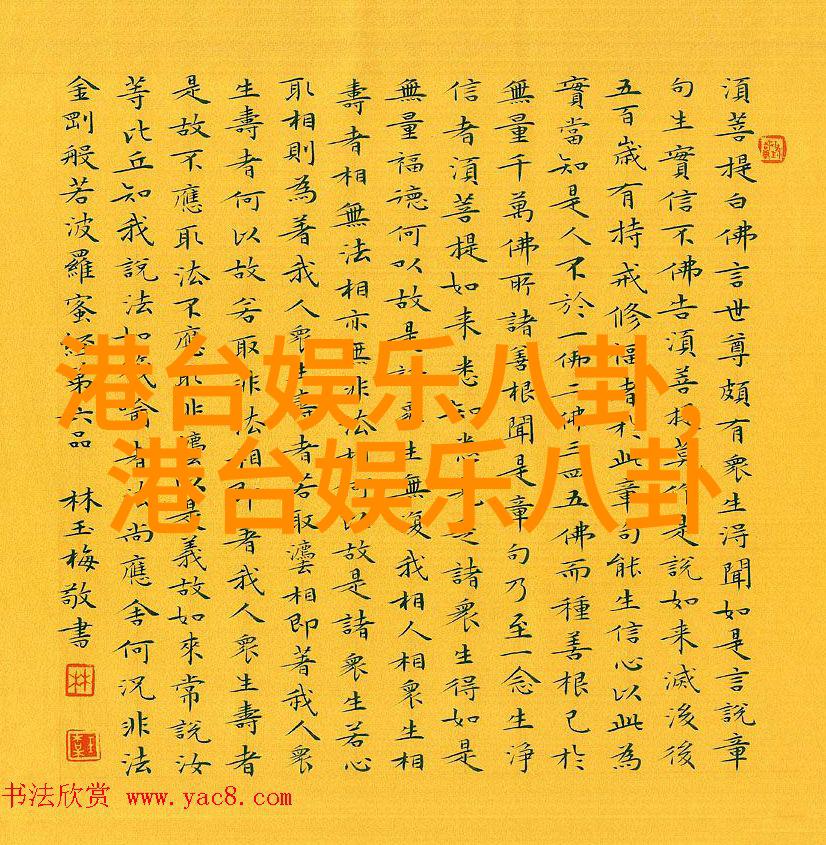 須菩提白佛言世尊頗有衆生得聞如是言說章
句生實信不佛告須菩提莫作是說如来滅後後
五百歲有持戒修福者於此章句能生信心以此為
實當知是人不於一佛二佛三四五佛而種善根已於
無量千萬佛所諸善根聞是章句乃至一念生淨
信者須菩提如来悉知悉見是諸衆生得如是
無量福德何以故是諸衆生無復我相人相衆生相
壽者相無法相亦無非法相何以故是諸衆生若心
取相則為著我人衆生壽者若取灋相即著我人衆
生壽者何以故若取非法相即者我人衆生壽者
是故不應取法不應取非灋以是義故如來常說汝
等比丘知我說法如筏喻者法尚應舍何況非法
金剛般若波羅蜜經第六品 林玉梅敬書
林
港台娱乐八卦,
港台娱乐八卦
书法欣赏 www.yac8.com